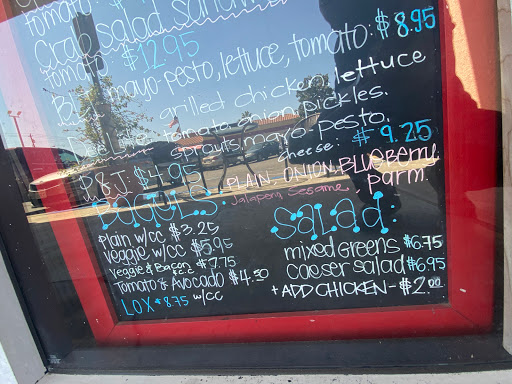 Crab salad sandwich
tomato: $12.95
mayo-pesto, lettuce, tomato: $8.95
grilled chicken, lettuce
tomato, onion, pickles.
sprouts, mayo-pesto.
cheese: $9.25
PBJ. $4.95
BAGELS: PLAIN, ONION, BLUEBERRY
Jalapeno Sesame Parm.
Plain w/cc $3.25
Veggie w/cc $5.95
Veggie & Bacon $7.75
Tomato & Avocado $4.50
LOX $8.75 w/cc
SALAD:
mixed Greens $6.75
caeser salad $6.95
+ ADD CHICKEN - $2.00